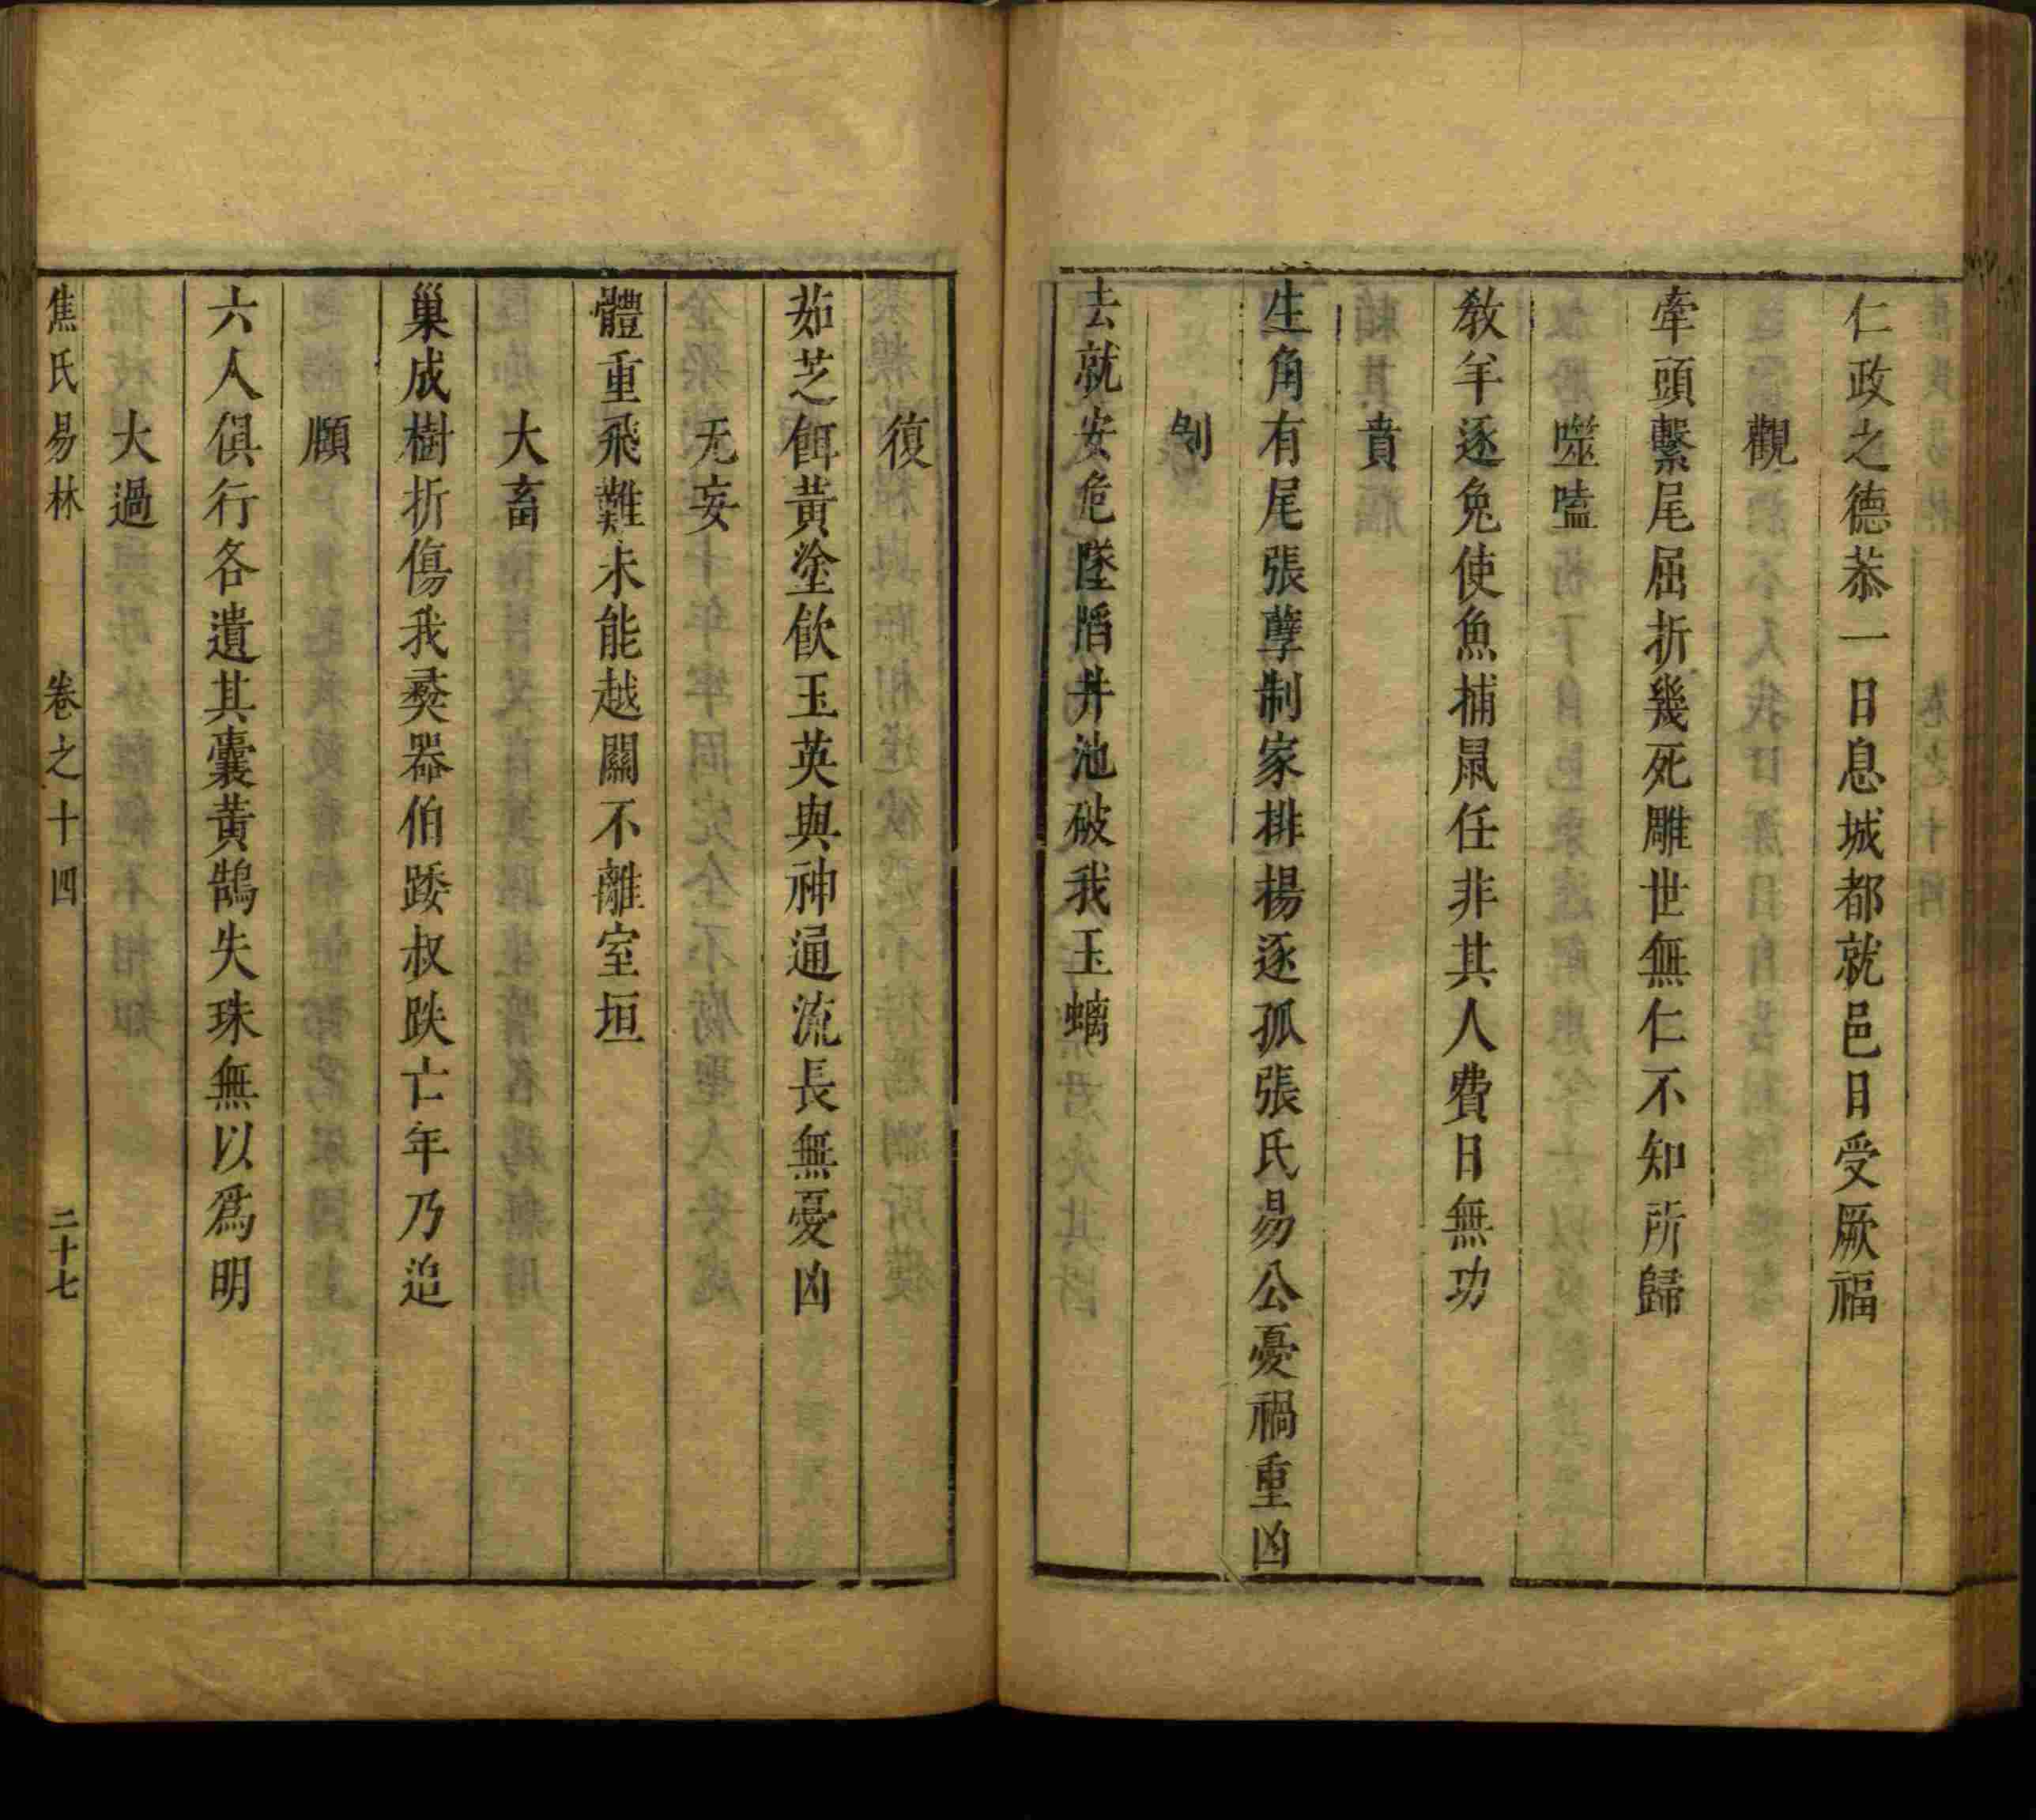 仁政之德叅一日息城都就邑日受厥福
觀
牽頭繫尾屈折幾死雕世無仁不知所歸
噬嗑
敎羊逐兔使魚捕鼠任非其人費日無功
賁
生角有尾張孽制家排楊逐孤張氏易公憂禍重凶
剝
去就安危墜䧟井池破我玉螭
復
茹芝餌黃塗飲玉英與神通流長無憂凶
无妄
體重飛難未能越關不離室垣
大畜
巢成樹折傷我彜器伯踒叔跌亡年乃追
頤
六人俱行各遺其囊黃鵠失珠無以爲明
大過
焦氏易林 卷之十四 二十七